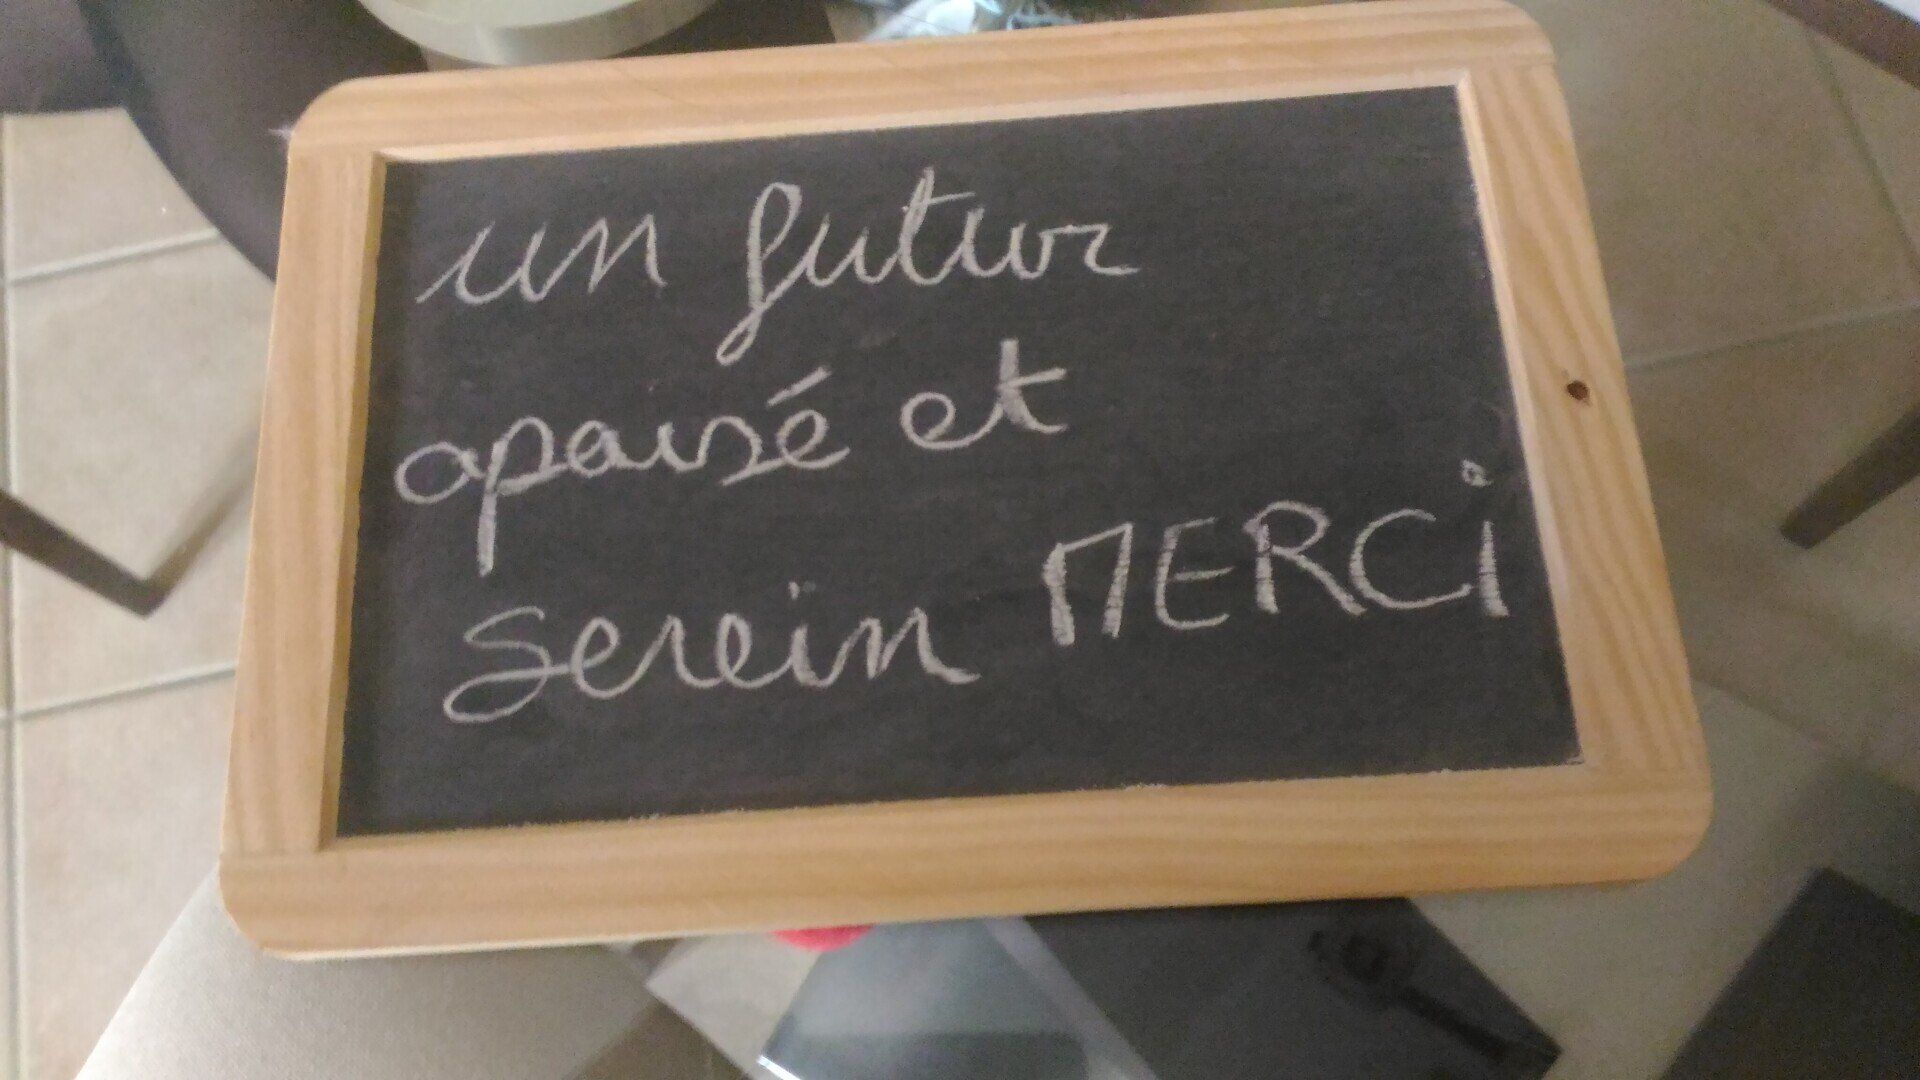 un futur
apaisé et
serein MERCi